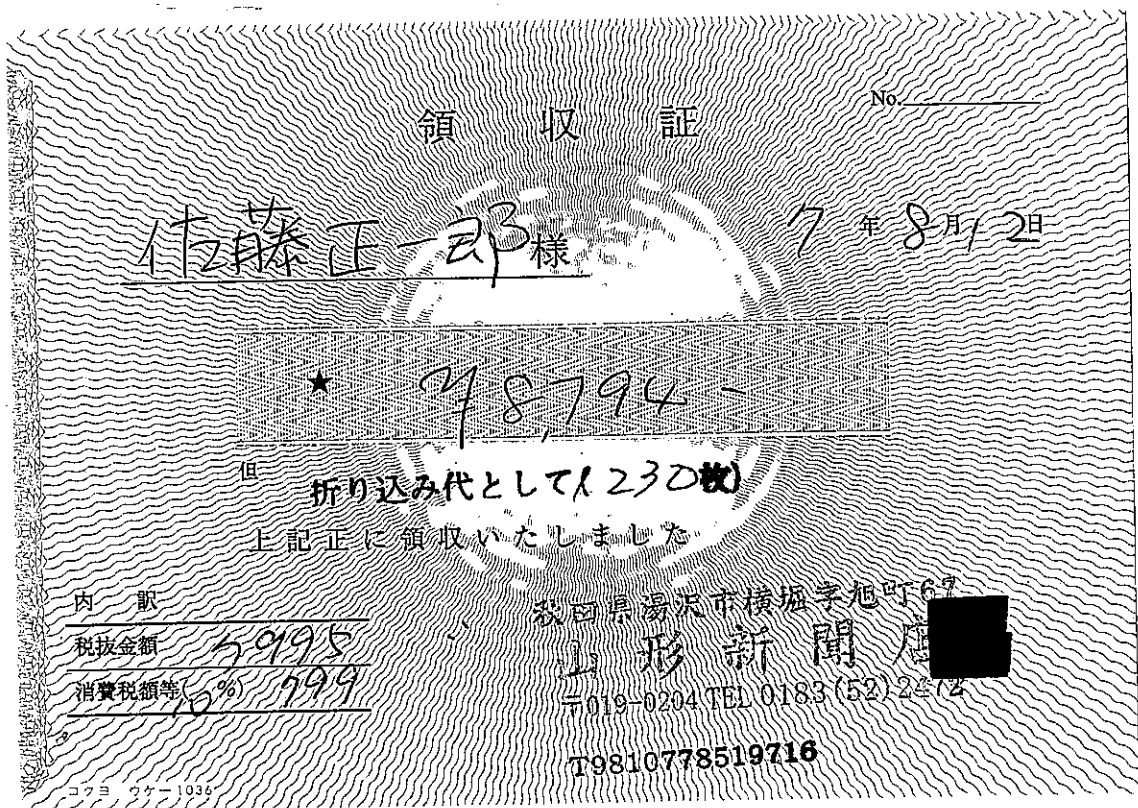 No.
領収証
佐藤正一郎様
7年8月12日
★ ¥8,794-
但 折り込み代として(1230枚)
上記正に領収いたしました
内訳
税抜金額 7995
消費税額等(10%) 799
秋田県湯沢市横堀字旭町67
山形新聞店
〒019-0204 TEL 0183(52)2472
T9810778519716
コクヨ ウケ-1036